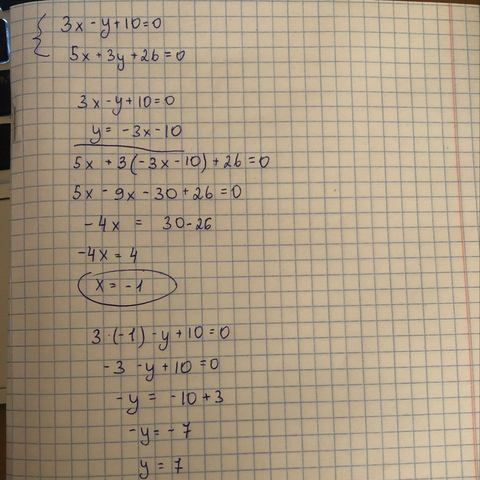 { 3x - y + 10 = 0
5x + 3y + 26 = 0
3x - y + 10 = 0
y = -3x - 10
5x + 3(-3x - 10) + 26 = 0
5x - 9x - 30 + 26 = 0
-4x = 30 - 26
-4x = 4
x = -1
3 · (-1) - y + 10 = 0
-3 - y + 10 = 0
-y = -10 + 3
-y = -7
y = 7